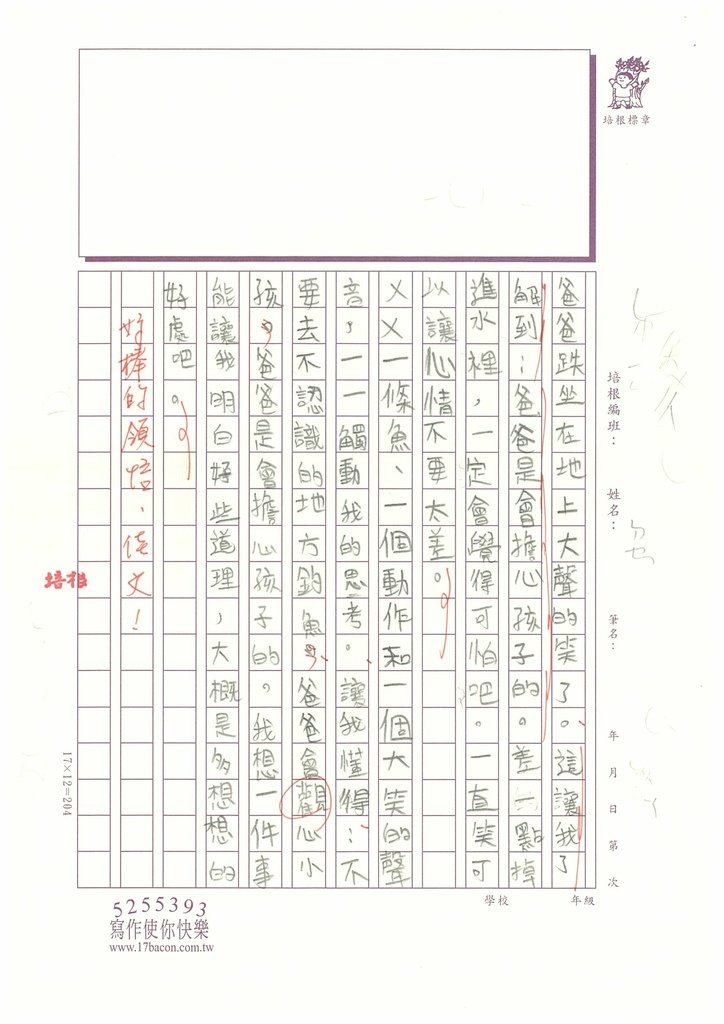 培根標章
培根編班：
姓名：
筆名：
年 月 日 第 次
爸爸跌坐在地上大聲的笑了。這讓我了
解到：爸爸是會擔心孩子的。差一點掉
進水裡，一定會覺得可怕吧。一直笑可
以讓心情不要太差。
ㄨㄨ一條魚、一個動作和一個大笑的聲
音，一一觸動我的思考。讓我懂得：不
要去不認識的地方釣魚，爸爸會觀心小
孩，爸爸是會擔心孩子的。我想一件事
能讓我明白好些道理，大概是多想想的
好處吧。
好棒的領悟、佳文！
培根
17×12=204
學校
年級
5255393
寫作使你快樂
www.17bacon.com.tw